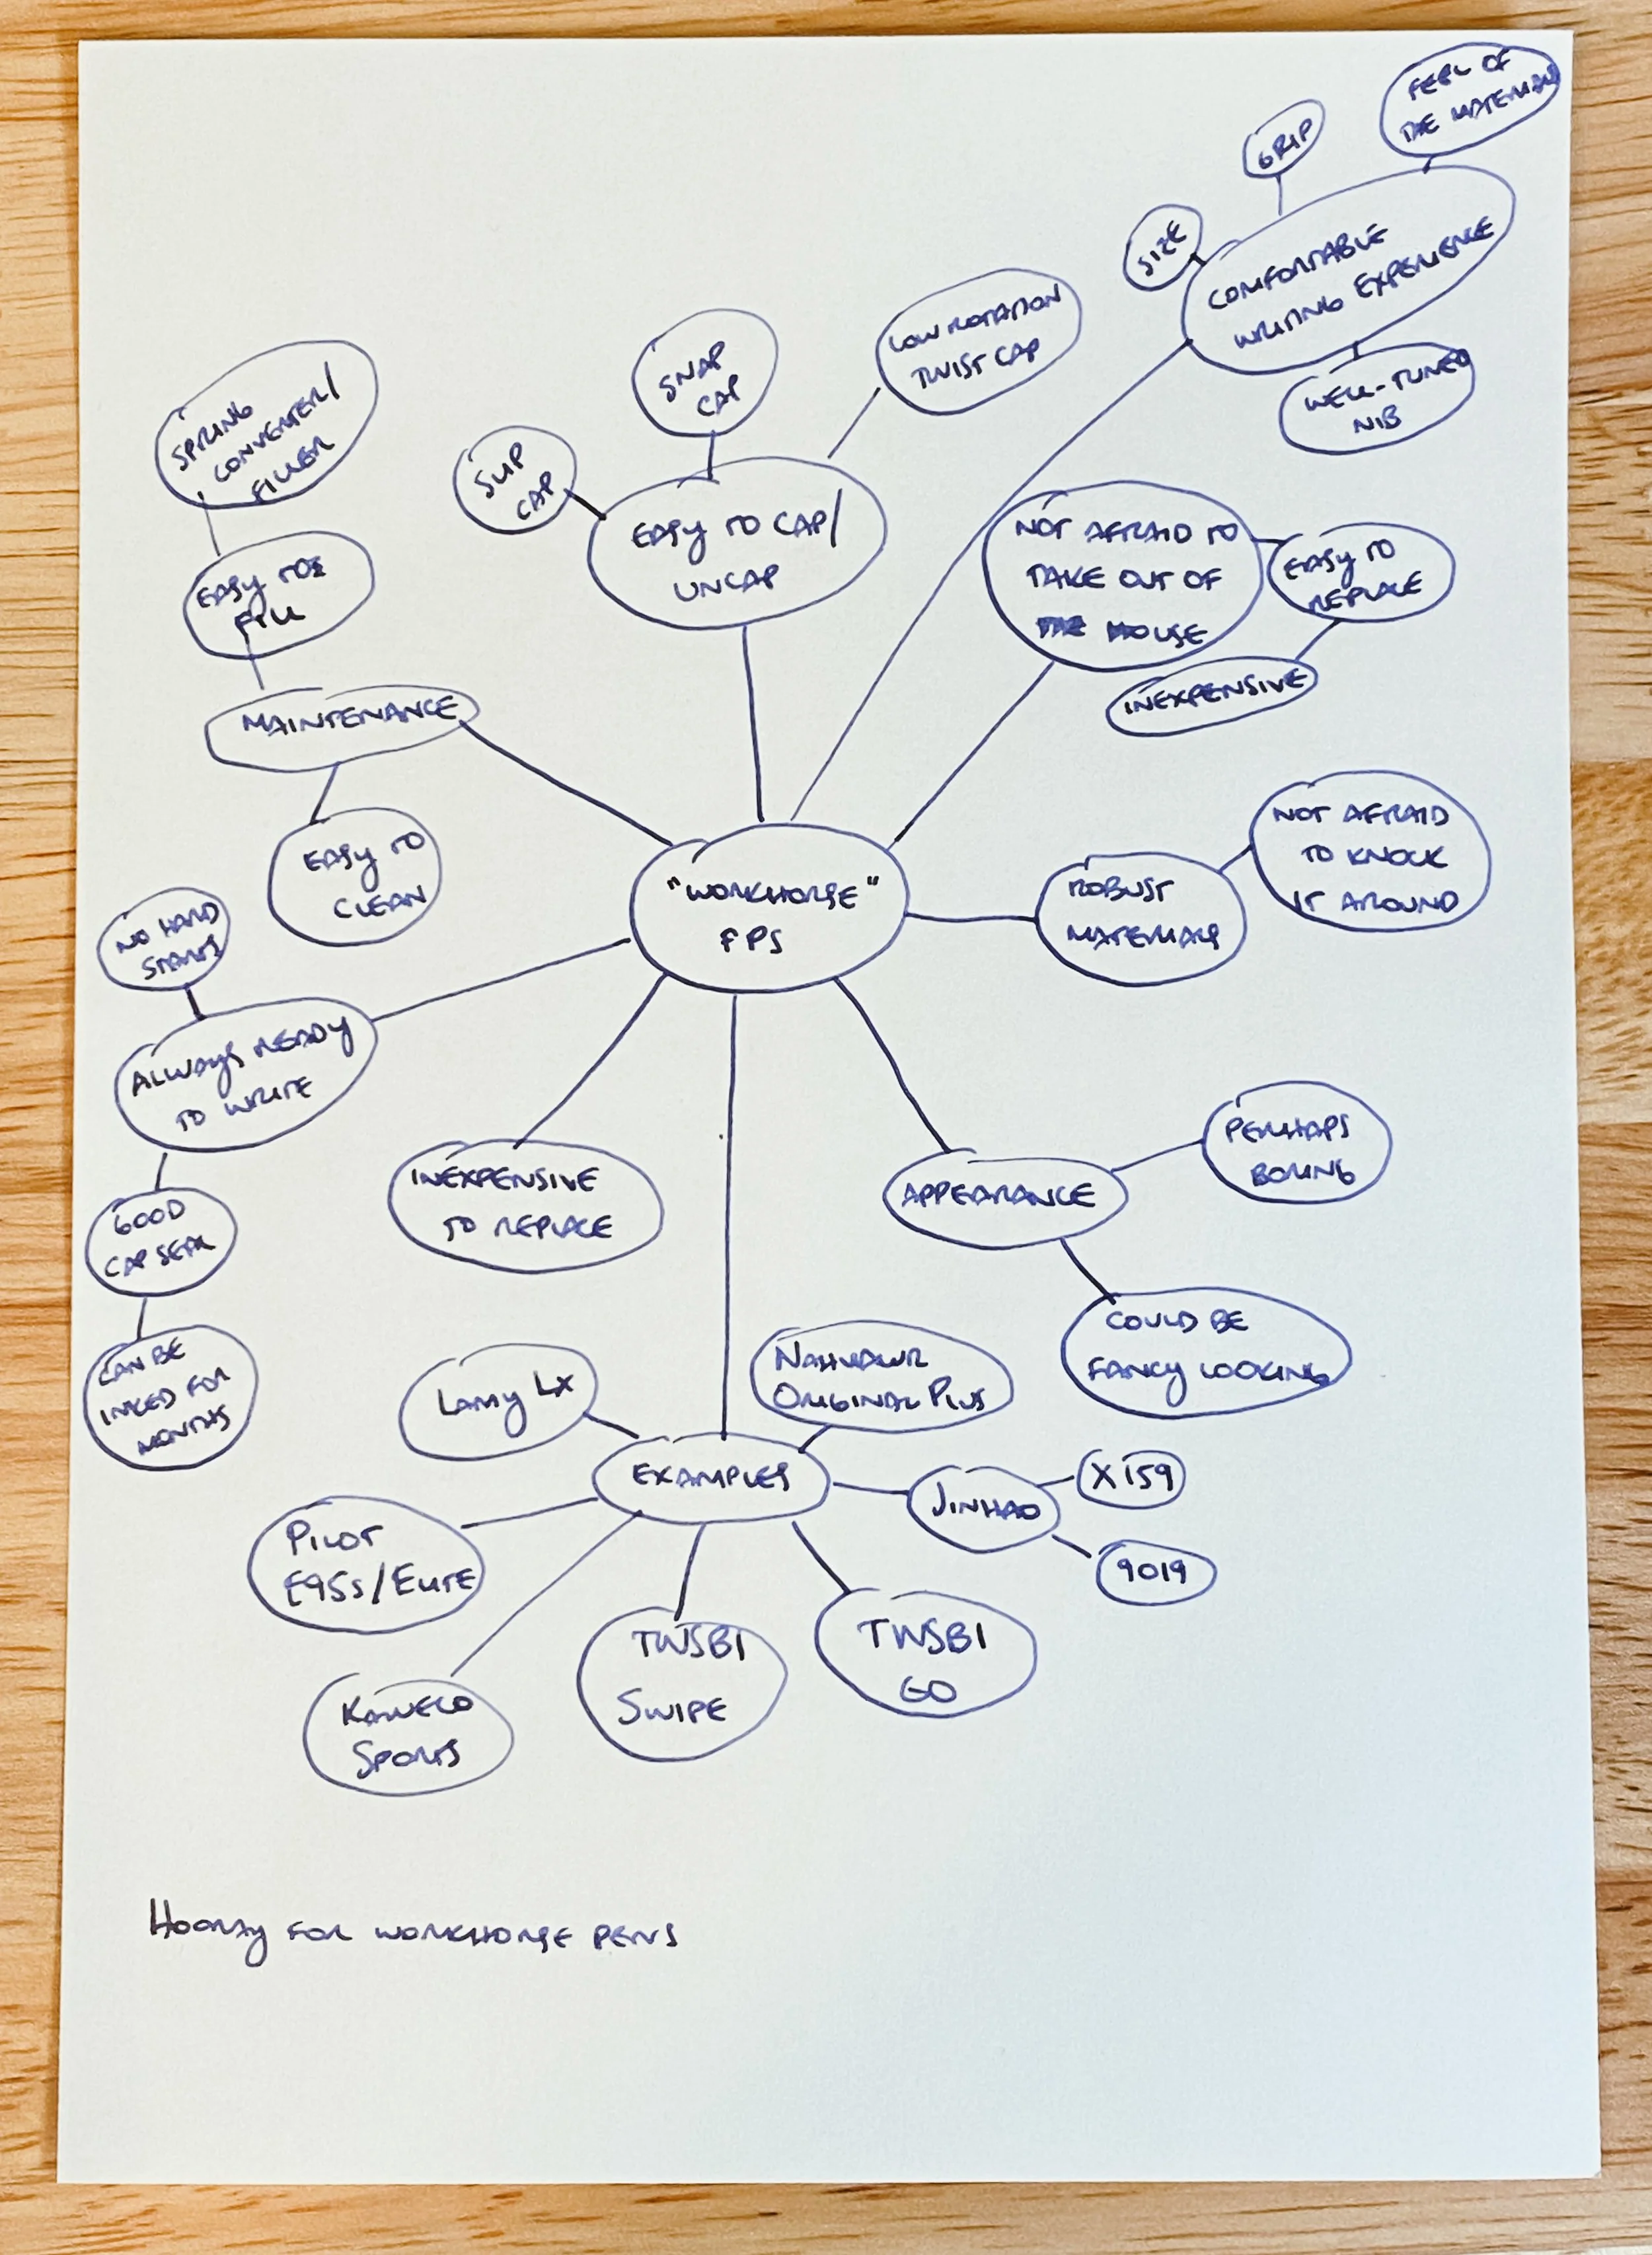 FEEL OF
THE MATERIAL
GRIP
SIZE
COMFORTABLE
WRITING EXPERIENCE
WELL-TUNED
NIB
LOW ROTATION
TWIST CAP
SNAP
CAP
SLIP
CAP
EASY TO CAP/
UNCAP
SPRING
CONVERTER/
FILLER
EASY TO
FILL
MAINTENANCE
EASY TO
CLEAN
NOT AFRAID TO
TAKE OUT OF
THE HOUSE
EASY TO
REPLACE
INEXPENSIVE
"WORKHORSE"
FPS
ROBUST
MATERIALS
NOT AFRAID
TO KNOCK
IT AROUND
NO HARD
STARTS
ALWAYS READY
TO WRITE
GOOD
CAP SEAL
CAN BE
INKED FOR
MONTHS
INEXPENSIVE
TO REPLACE
APPEARANCE
PERHAPS
BORING
COULD BE
FANCY LOOKING
EXAMPLES
LAMY LX
NAHVALUR
ORIGINAL PLUS
JINHAO
X159
9019
PILOT
E95S/ELITE
KAWECO
SPORTS
TWSBI
SWIPE
TWSBI
GO
HOORAY FOR WORKHORSE PENS